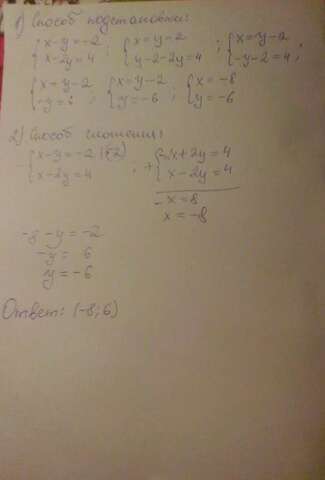 1) Способ подстановки:
{x-y=-2 ; {x=y-2 ; {x=y-2
{x-2y=4 {y-2-2y=4 {-y-2=4 ;
{x=y-2 ; {x=y-2 ; {x=-8
{-y=6 {y=-6 {y=-6
2) Способ сложения:
{x-y=-2 |(-2) ; + {-2x+2y=4
{x-2y=4 {x-2y=4
-x=8
x=-8
-8-y=-2
-y=6
y=-6
Ответ: (-8;6)